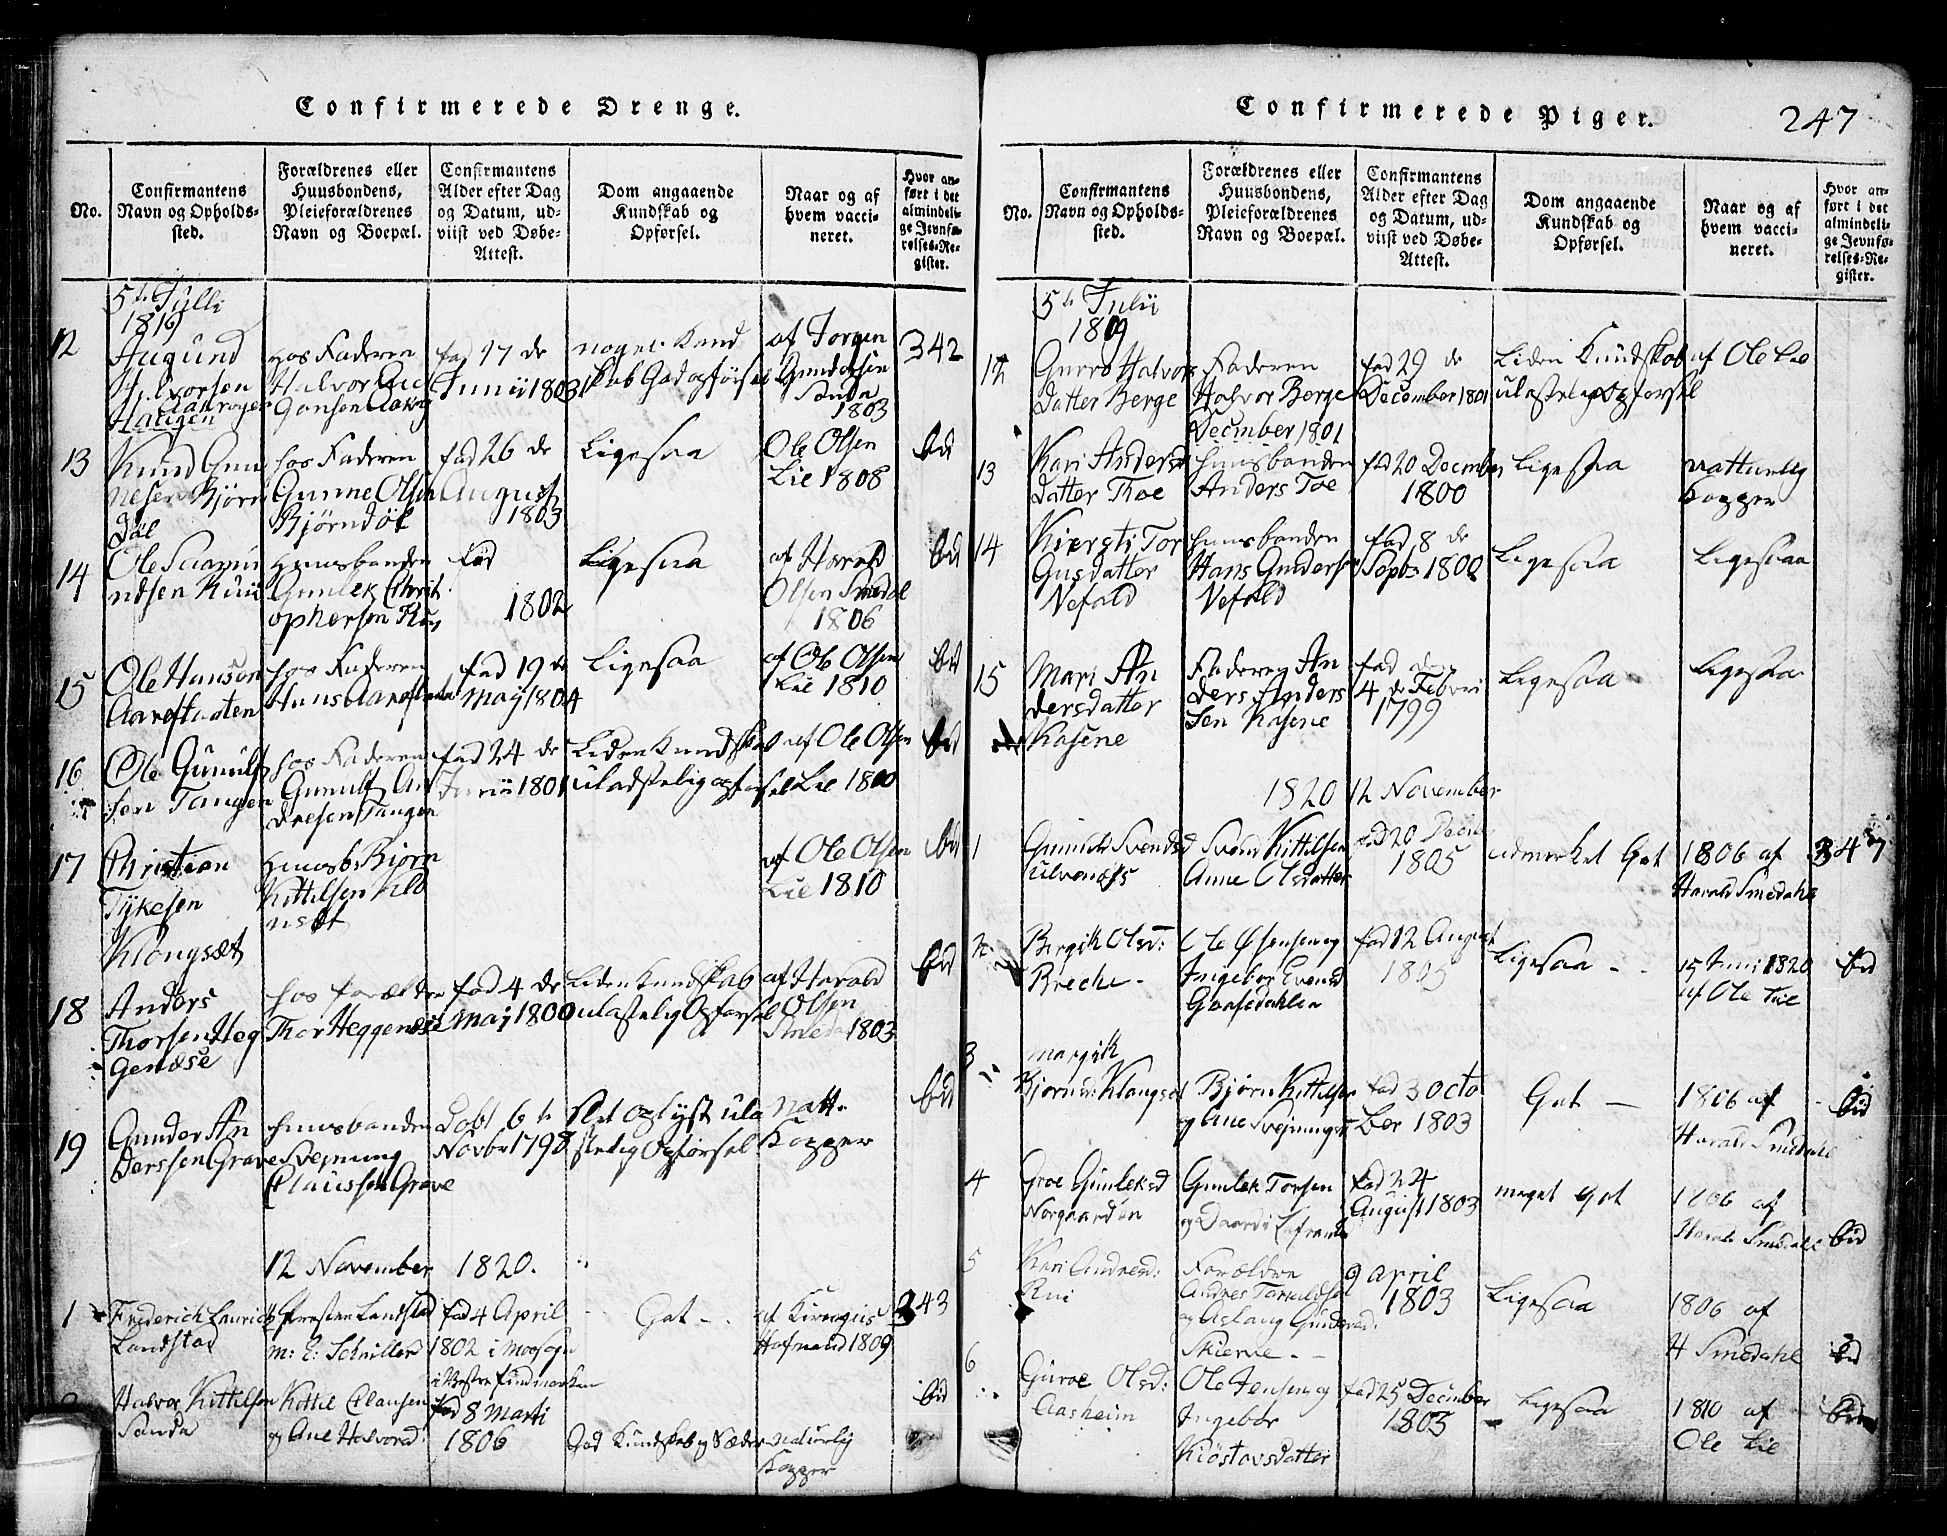 Confirmerede Drenge.
No.
Confirmantens
Navn og Opholds-
sted.
Forældrenes eller
Huusbondens,
Pleieforældrenes
Navn og Boepæl.
Confirmantens
Alder efter Dag
og Datum, ud-
viist ved Døbe-
Attest.
Dom angaaende
Kundskab og
Opførsel.
Naar og af
hvem vacci-
neret.
Hvor an-
ført i det
almindeli-
ge Jevnfø-
relses-Re-
gister.
1819
12
hos Faderen
fød 17 de
Junii 1803
af Jorgen
Gundersen
Sanda
1803
342
13
Knud Gun
nesen Bjørn
Dal
hos Faderen
Gunne Olsen
Bjørndøl
fød 26 de
August
1803
Ligesaa
Ole Olsen
Lie 1808
14
Huusbonden
Gunlek Christ
ophersen
fød
1802
Ligesaa
af Harald
Olsen Smedal
1806
15
Ole Hansen
hos Faderen
fød 19 de
May 1804
Ligesaa
af Ole Olsen
Lie 1810
16
Ole Gunulf
sen Tangen
hos Faderen
Gunulf An
dresen Tangen
fød 24 de
Junii 1801
Liden Kundskab
uladstelig opførsel
af Ole Olsen
Lie 1800
17
Christian
Tykesen
Klongsæt
Huusb Bjørn
Kittelsen Klo
nsæt
af Ole Olsen
Lie 1810
18
Anders
Thorsen Heg
Genæse
hos forældre
Thor Heggenæse
fød 4 de
May 1800
Liden Kundskab
ulastelig Opførsel
af Harald
Olsen
Smedal 1803
19
Gunder An
derssen Grave
Huusbonden
Svejnung
Claussen Grave
Døbt 6 te
Novbr 1798
Slet oplyst ula
stelig Opførsel
natt.
Kopper
12 November 1820.
1
Friederich Lauritz
Landstad
Præsten Landstad
m: E: Schnitler
fød 4 April
1802 i
i Vestre Findmarken
Got
af Kirurgus
Hofmand 1809
343
Halvor Kittilsen
Sanda
Kittil Clausen
og Ane Halvorsd:
fød 8 Marti
1806
God Kundskab og Sæder
naturlig
Kopper
Confirmerede Piger.
247
No.
Confirmantens
Navn og Opholds-
sted.
Forældrenes eller
Huusbondens,
Pleieforældrenes
Navn og Boepæl.
Confirmantens
Alder efter Dag
og Datum, ud-
viist ved Døbe-
Attest.
Dom angaaende
Kundskab og
Opførsel.
Naar og af
hvem vacci-
neret.
Hvor an-
ført i det
almindeli-
ge Jevnfø-
relses-Re-
gister.
5te Julii
1819
12
Gurro Halvors
Datter Berge
Faderen
Halvor Berge
December 1801
fød 29 de
December 1801
Liden Kundskab
ulastelig Opførsel
af Ole Lie
13
Kari Anders
Datter Thoe
Huusbonden
Anders Toe
fød 20 December
1800
Ligesaa
natturlig
Kopper
14
Kiersti Tor
Gusdatter
Nefald
Huusbonden
Hans Gunders
Vefald
fød 8 de
Septbr 1802
Ligesaa
Ligesaa
15
Mari An
dersdatter
Kasene
Faderen An
ders Anders
Sen Kasene
fød den
4 de Febrri
1799
Ligesaa
Ligesaa
1820 12 November
1
Gunild Svendsd
Svend Kittilsen
Anne Olsdatter
fød 20 Decbr
1805
udmerket Got
1806 af
Harald Smedahl
347
2
Bergit Olsd:
Breche
Ole
Ingebor Evensd
fød 12 August
1803
Ligesaa
15 Juni 1820
af Ole Lie
3
Margit
Bjørnsd: Klongset
Bjørn Kittilsen
og Ane Svejnungsd
fød 3 Octo
ber 1803
Got
1806 af
Harald Smedahl
4
Groe Gunleksd
Norgaarden
Gunlek Torsen
fød 24
August 1803
meget Got
1806 af
Harald Smedahl
5
Kari Andresd:
Forældre
Andres
og Aslaug Gundersd:
Skierve
9 april
1803
Ligesaa
1806 af
H Smedahl
6
Guroe Olsd:
Aasheim
Ole Jensen og
Ingebor
Kiøstovsdatter
fød 25 December
1803
Ligesaa
1810 af
Ole Lie